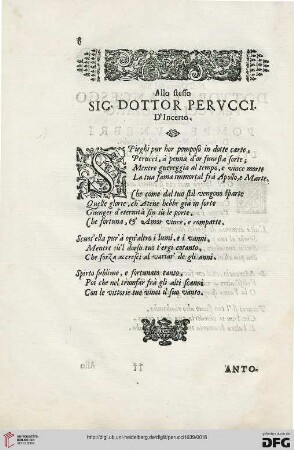 Allo stesso
SIG. DOTTOR PERVCCI.
D'Incerto.
SPieghi pur hor pomposo in dotte carte,
Perucci, à penna d'or funesta sorte;
Mentre guerreggia al tempo, e vince morte
La tua fama immortal frà Apollo e Marte.
Che come dal tuo stil vengono sparte
Quelle glorie, ch'Atene hebbe già in sorte
Giunger d'eternità sin sù le porte,
Che fortuna, & uanto viue, e comparte.
Scuot'ella pur'à ogn'altro i lumi, e i vanni,
Mentre sù'l dorso tuo s'ergi cotanto,
Che forza accresci al variar' de gli anni.
Spirto sublime, e fortunato tanto,
Poi che nel trionfar frà gli alti scanni
Con le vittorie tue vinci il suo vanto.
†† Allo
ANTO-
http://digi.ub.uni-heidelberg.de/diglit/perucci1639/0018
UNIVERSITÄTS-
BIBLIOTHEK
HEIDELBERG
gefördert durch die
DFG